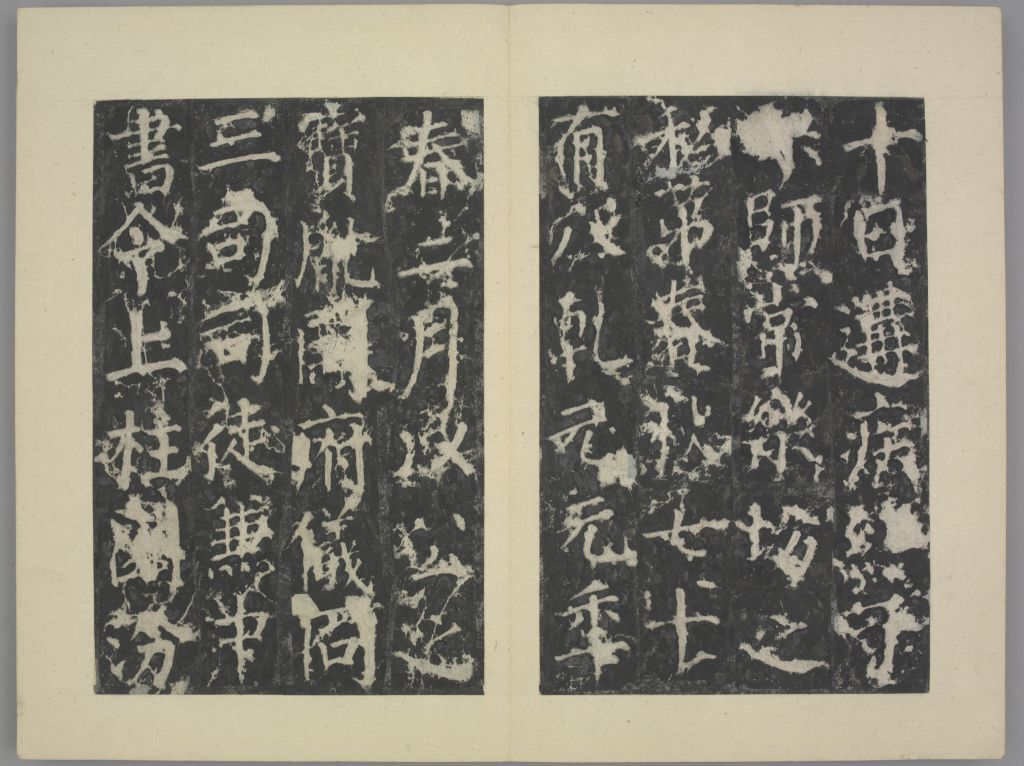 十日遘疾終于
京師常樂坊之
私第春秋七十
有乾元元年
春二月以公之
寶胤開府儀同
三司司徒兼中
書令上柱國汾